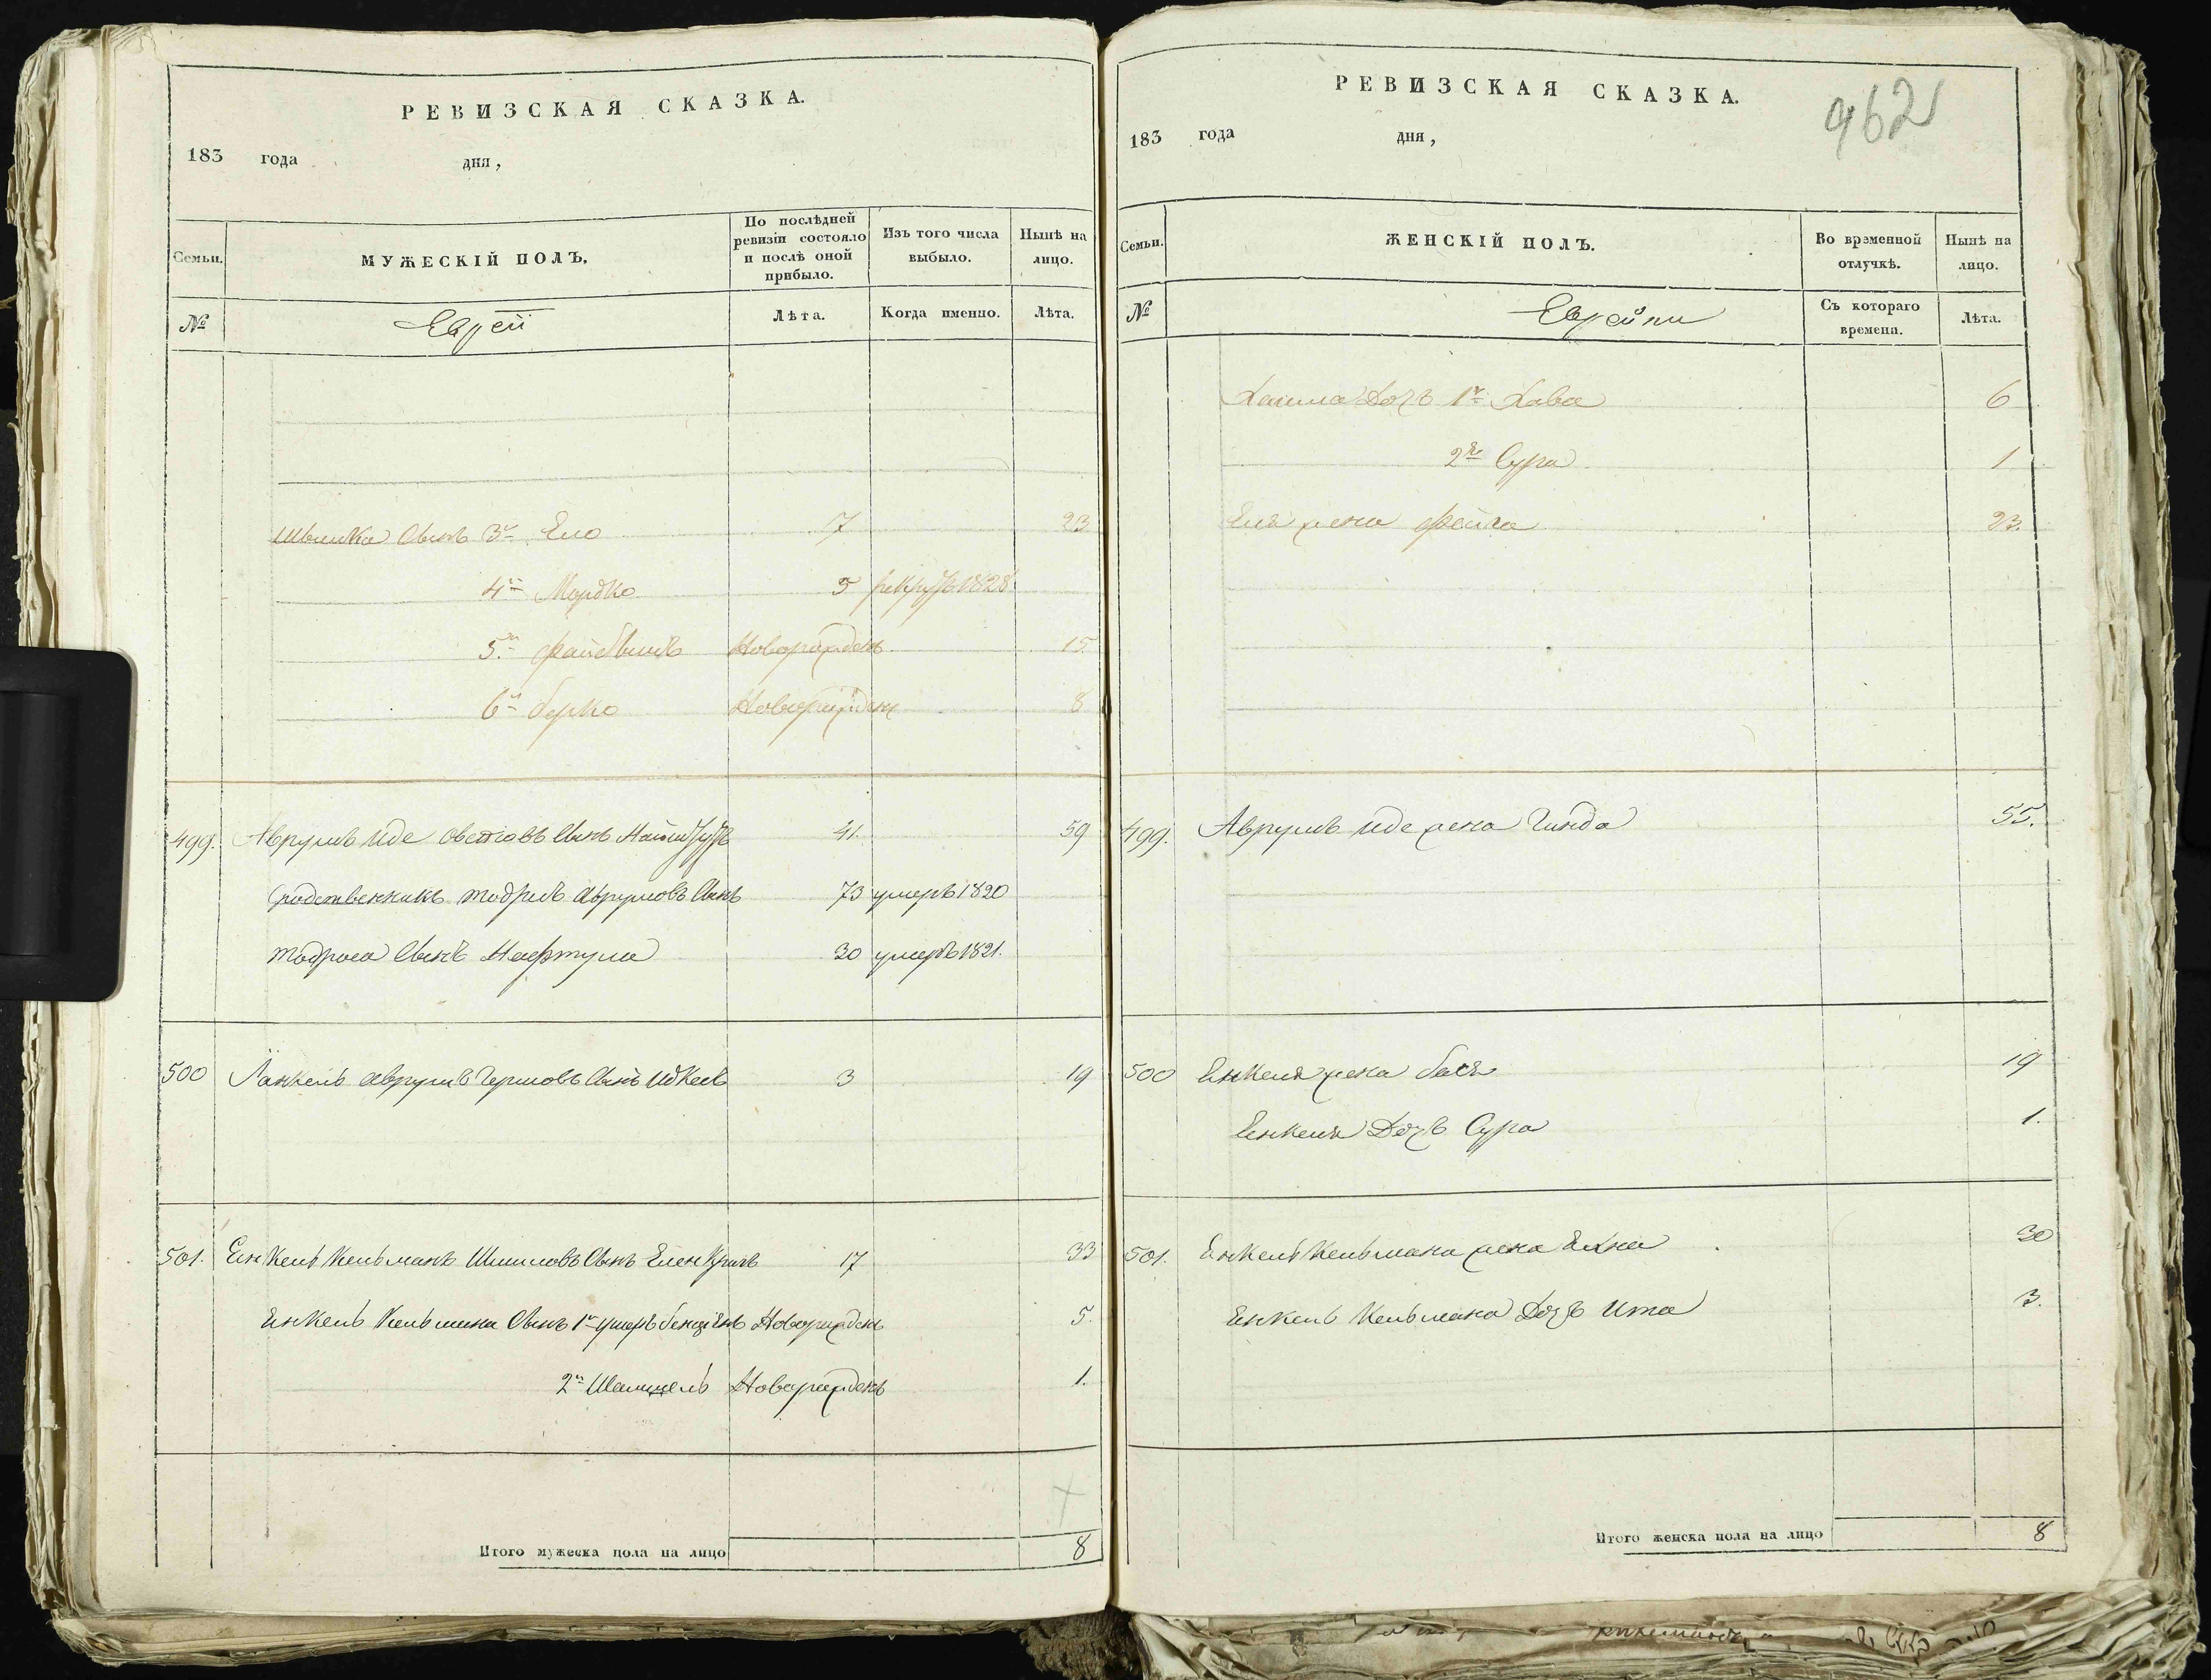 РЕВИЗСКАЯ СКАЗКА.
183 года дня,
Семьи. МУЖЕСКІЙ ПОЛЪ. По послѣдней ревизіи состояло и послѣ оной прибыло. Изъ того числа выбыло. Нынѣ на лицо.
№ Еврей Лѣта. Когда именно. Лѣта.
Сынъ 3й Ело 7 23
4й Мордко 5 рекрутъ 1828
5й Файбишъ Новорожденъ 15
6й Берко Новорожденъ 8
499. Аврумъ Иде Сынъ 41. 59
родственникъ Тодрисъ Аврумовъ Сынъ 73 умеръ 1820
Тодроса Сынъ Нафтула 30 умеръ 1821.
500 Янкель Аврумъ Сынъ 3 19
501. Енкель Кельманъ Шмиловъ Сынъ 17 33
Енкель Кельмана Сынъ 1й Новорожденъ 5.
2й Новорожденъ 1.
Итого мужеска пола на лицо 8
РЕВИЗСКАЯ СКАЗКА.
962
183 года дня,
Семьи. ЖЕНСКІЙ ПОЛЪ. Во временной отлучкѣ. Нынѣ на лицо.
№ Еврейки Съ котораго времени. Лѣта.
Хаима Дочь 1я Хава 6
2я Сура 1
Еля жена Фейга 23.
499. Аврумъ Иде жена Гинда 55.
500 Енкеля жена Бася 19
Енкеля Дочь Сура 1.
501. Енкель Кельмана жена 30
Енкель Кельмана Дочь Ита 3.
Итого женска пола на лицо 8